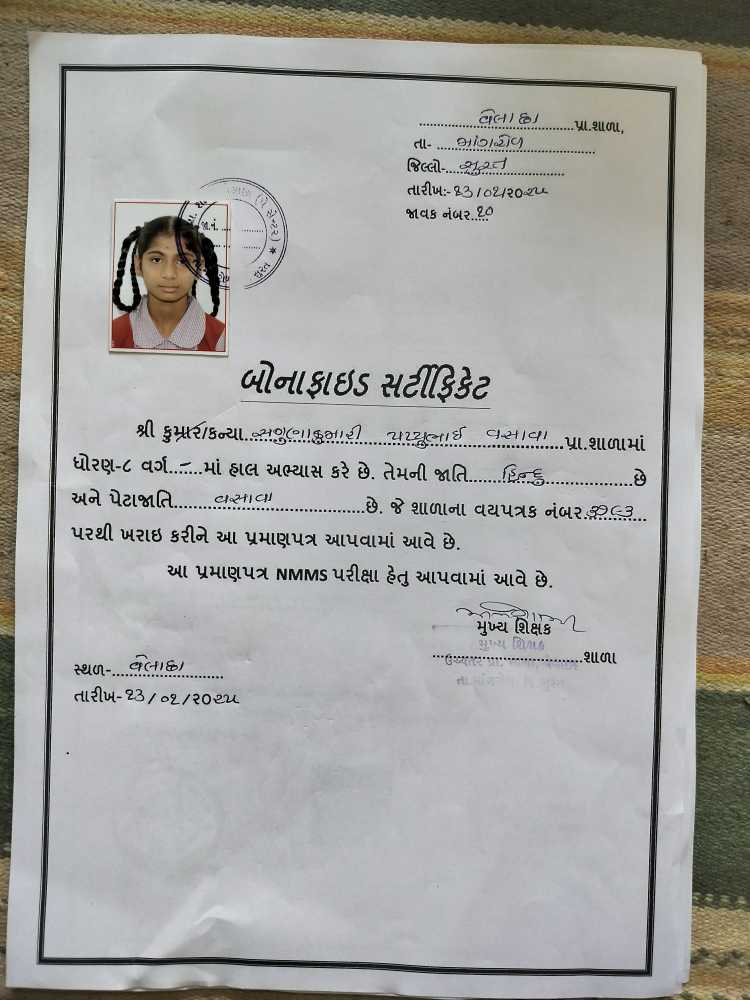 વેલાછા પ્રા.શાળા,
તા- માંગરોળ
જિલ્લો- સુરત
તારીખ:- ૨૩/૦૨/૨૦૨૫
જાવક નંબર. ૨૦
જા.નં.
(પે સેન્ટર) ★ સુરત
બોનાફાઇડ સર્ટીફિકેટ
શ્રી કુમાર/કન્યા વસાવા પ્રા.શાળામાં
ધોરણ-૮ વર્ગ - માં હાલ અભ્યાસ કરે છે. તેમની જાતિ હિન્દુ છે
અને પેટાજાતિ વસાવા છે. જે શાળાના વયપત્રક નંબર
પરથી ખરાઇ કરીને આ પ્રમાણપત્ર આપવામાં આવે છે.
આ પ્રમાણપત્ર NMMS પરીક્ષા હેતુ આપવામાં આવે છે.
મુખ્ય શિક્ષક
મુખ્ય શિક્ષક
શાળા
સ્થળ- વેલાછા
તારીખ- ૨૩/૦૨/૨૦૨૫